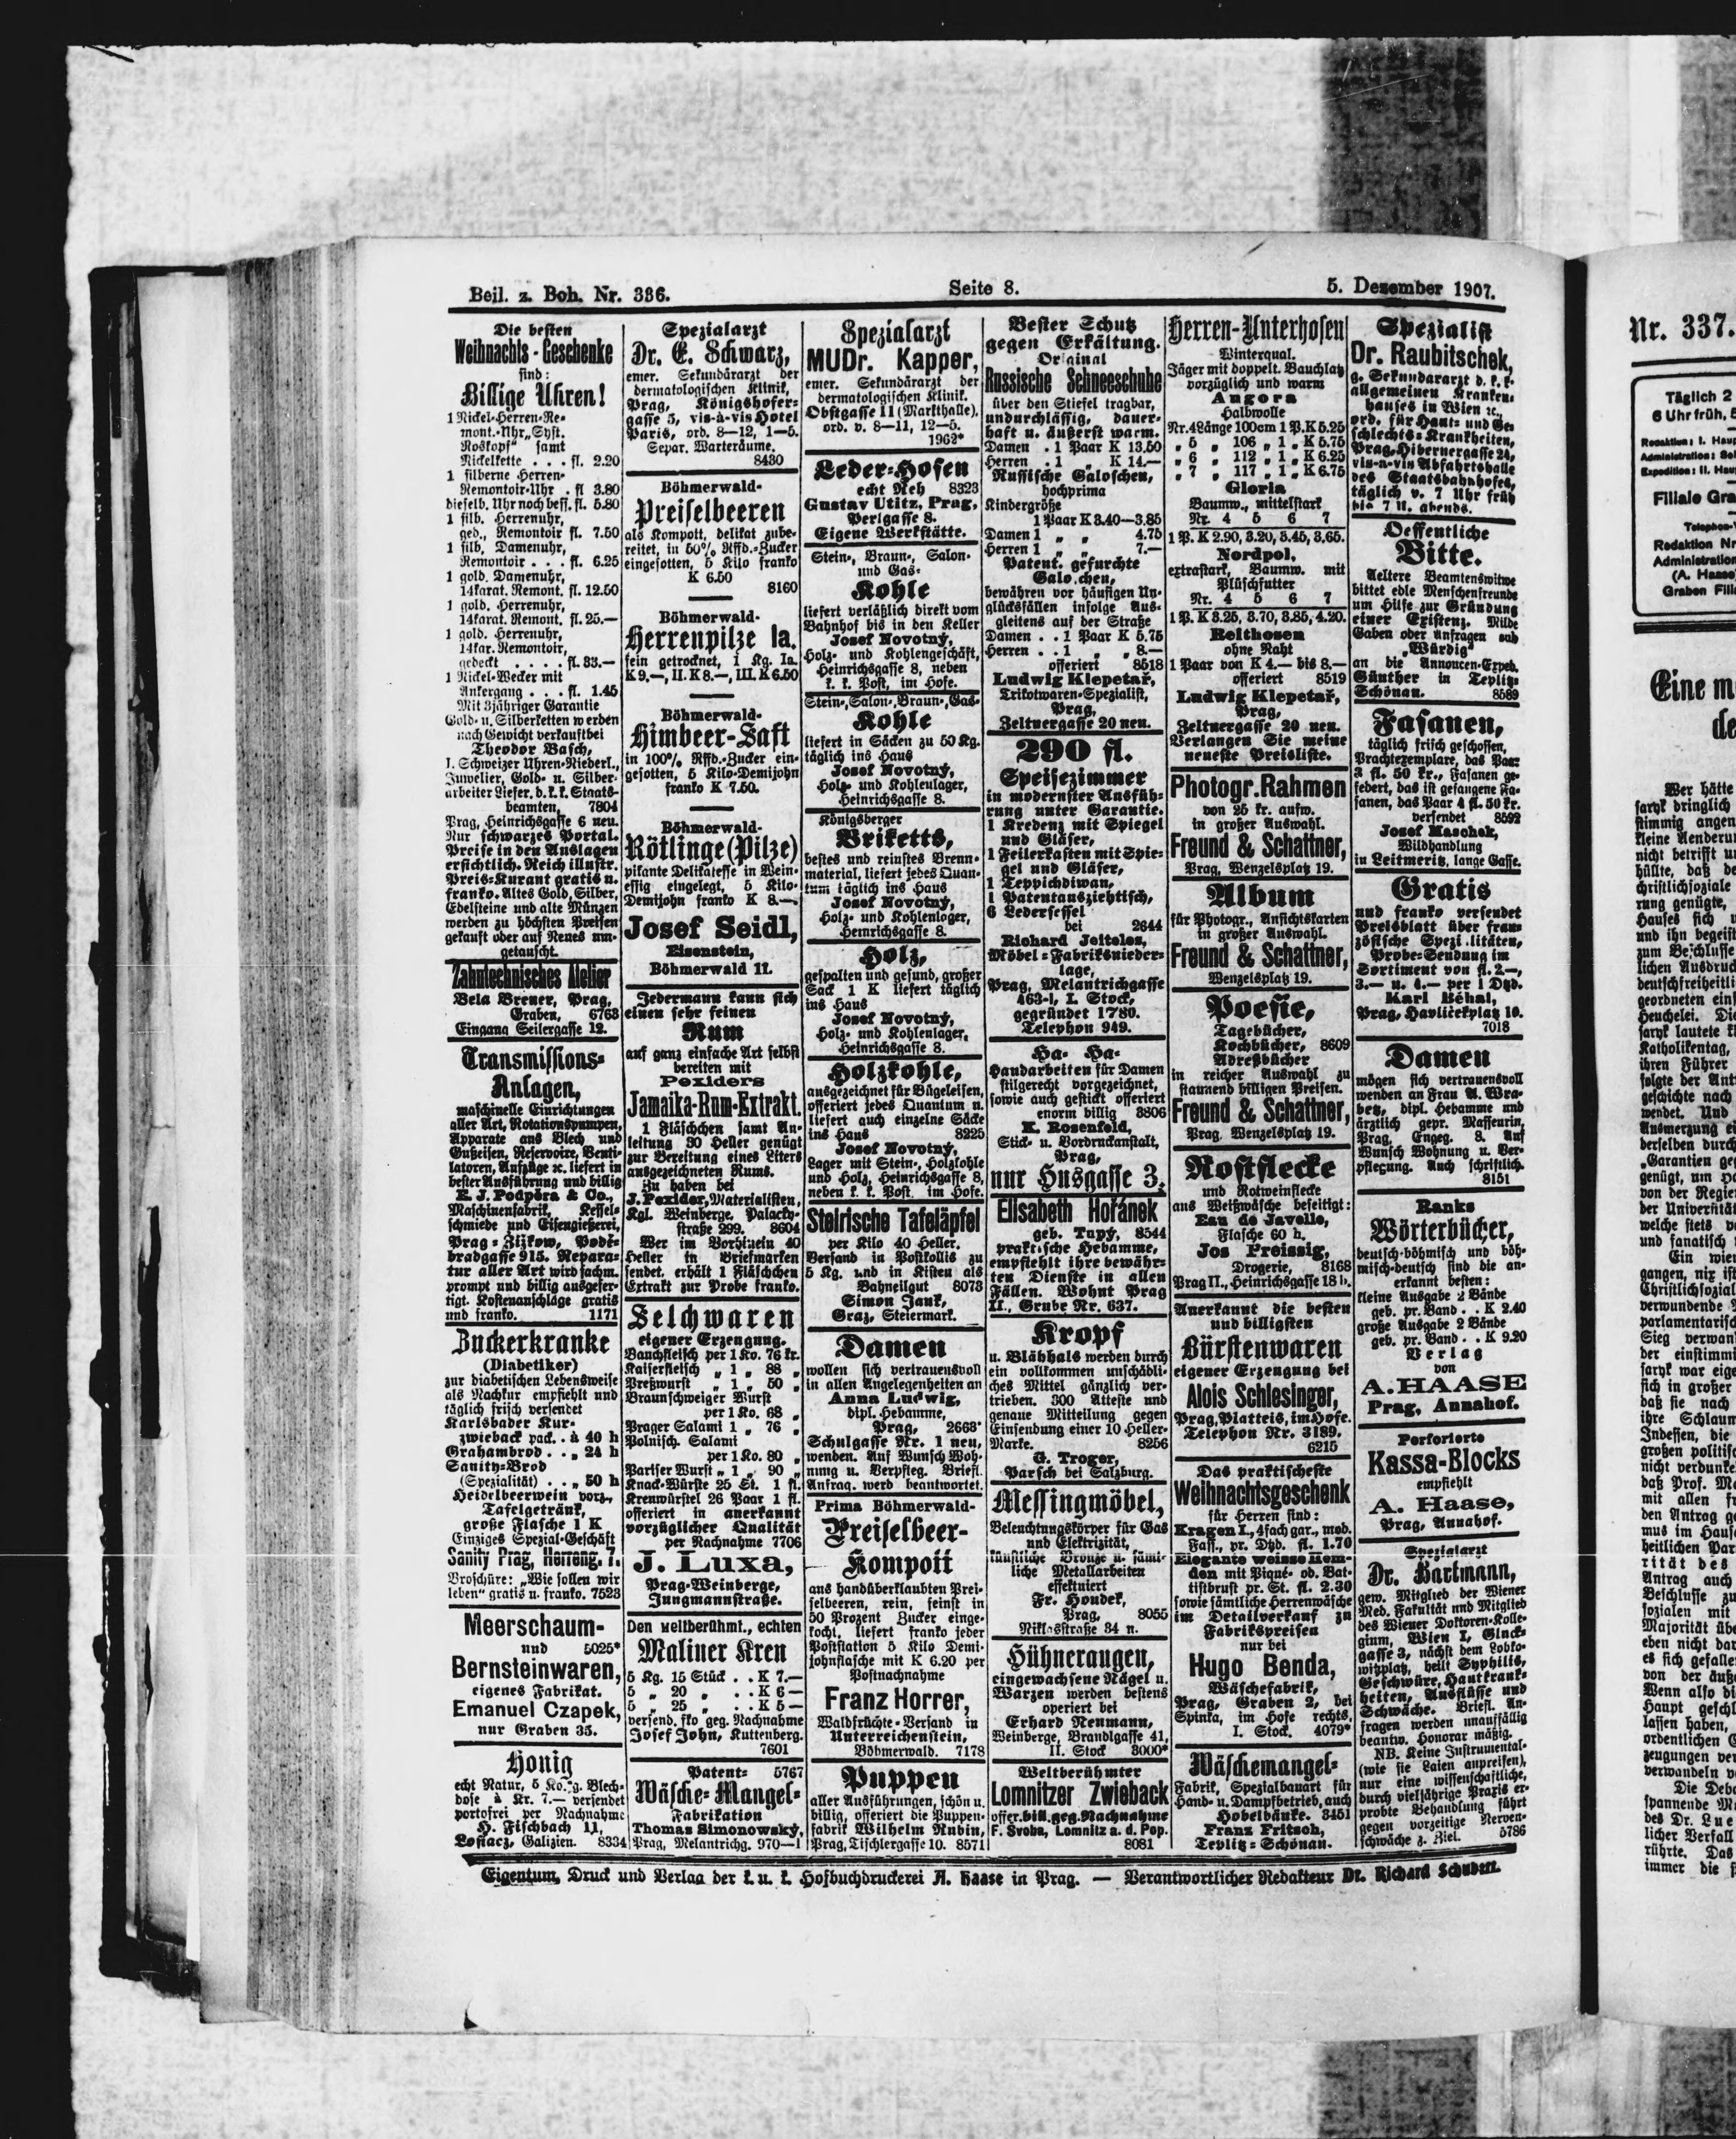 Beil. z. Boh. Nr. 336.
Seite 8.
5. Dezember 1907.
Die besten
Weihnachts-Geschenke
sind:
Billige Uhren!
1 Nickel-Herren-Re-
mont.-Uhr „Syst.
Roskopf" samt
Nickelkette . . . fl. 2.20
1 silberne Herren-
Remontoir-Uhr . fl 3.80
dieselb. Uhr noch bess. fl. 5.80
1 silb. Herrenuhr,
ged., Remontoir fl. 7.50
1 silb. Damenuhr,
Remontoir . . . fl. 6.25
1 gold. Damenuhr,
14karat. Remont. fl. 12.50
1 gold. Herrenuhr,
14karat. Remont. fl. 25.—
1 gold. Herrenuhr,
14kar. Remontoir,
gedeckt . . . . fl. 33.—
1 Nickel-Wecker mit
Ankergang . . . fl. 1.45
Mit 3jähriger Garantie
Gold- u. Silberketten werden
nach Gewicht verkauft bei
Theodor Basch,
I. Schweizer Uhren-Niederl.,
Juwelier, Gold- u. Silber-
arbeiter Liefer. d. k. k. Staats-
beamten, 7804
Prag, Heinrichsgasse 6 neu.
Nur schwarzes Portal.
Preise in den Auslagen
ersichtlich. Reich illustr.
Preis-Kurant gratis u.
franko. Altes Gold, Silber,
Edelsteine und alte Münzen
werden zu höchsten Preisen
gekauft oder auf Neues um-
getauscht.
Zahntechnisches Atelier
Bela Brener, Prag,
Graben, 6763
Eingang Seilergasse 12.
Transmissions-
Anlagen,
maschinelle Einrichtungen
aller Art, Rotationspumpen,
Apparate aus Blech und
Gußeisen, Reservoire, Venti-
latoren, Aufzüge rc. liefert in
bester Ausführung und billig
E. J. Podpěra & Co.,
Maschinenfabrik, Kessel-
schmiede und Eisengießerei,
Prag-Žižkow, Podě-
bradgasse 915. Repara-
tur aller Art wird sachm.
prompt und billig ausgefer-
tigt. Kostenanschläge gratis
und franko. 1171
Zuckerkranke
(Diabetiker)
zur diabetischen Lebensweise
als Nachkur empfiehlt und
täglich frisch versendet
Karlsbader Kur-
zwieback pack. . à 40 h
Grahambrod . . „ 24 h
Sanity-Brod
(Spezialität) . . „ 50 h
Heidelbeerwein vorz.,
Tafelgetränk,
große Flasche 1 K
Einziges Spezial-Geschäft
Sanity Prag, Herreng. 7.
Broschüre: „Wie sollen wir
leben" gratis u. franko. 7523
Meerschaum-
und 5025*
Bernsteinwaren,
eigenes Fabrikat.
Emanuel Czapek,
nur Graben 35.
Honig
echt Natur, 5 Ko.-g. Blech-
dose à Kr. 7.— versendet
portofrei per Nachnahme
H. Fischbach 11,
Losiacz, Galizien. 8334
Spezialarzt
Dr. E. Schwarz,
emer. Sekundärarzt der
dermatologischen Klinik,
Prag, Königshofer-
gasse 5, vis-à-vis Hotel
Paris, ord. 8—12, 1—5.
Separ. Warteräume.
8430
Böhmerwald-
Preiselbeeren
als Kompott, delikat zube-
reitet, in 50% Rffd.-Zucker
eingesotten, 5 Kilo franko
K 6.50
8160
Böhmerwald-
Herrenpilze Ia.
fein getrocknet, 1 Kg. Ia.
K 9.—, II. K 8.—, III. K 6.50
Böhmerwald-
Himbeer-Saft
in 100% Rffd.-Zucker ein-
gesotten, 5 Kilo-Demijohn
franko K 7.50.
Böhmerwald-
Rötlinge (Pilze)
pikante Delikatesse in Wein-
essig eingelegt, 5 Kilo-
Demijohn franko K 8.—.
Josef Seidl,
Eisenstein,
Böhmerwald 11.
Jedermann kann sich
einen sehr feinen
Rum
auf ganz einfache Art selbst
bereiten mit
Pexiders
Jamaika-Rum-Extrakt.
1 Fläschchen samt An-
leitung 80 Heller genügt
zur Bereitung eines Liters
ausgezeichneten Rums.
Zu haben bei
J. Pexider, Materialisten,
Kgl. Weinberge, Palacky-
straße 299. 8604
Wer im Vorhinein 40
Heller in Briefmarken
sendet, erhält 1 Fläschchen
Extrakt zur Probe franko.
Selchwaren
eigener Erzeugung.
Bauchfleisch per 1 Ko. 76 kr.
Kaiserfleisch „ 1 „ 88 „
Preßwurst „ 1 „ 50 „
Braunschweiger Wurst
per 1 Ko. 68 „
Prager Salami 1 „ 76 „
Polnisch. Salami
per 1 Ko. 80 „
Pariser Wurst „ 1 „ 90 „
Knack-Würste 25 St. 1 fl.
Krenwürstel 26 Paar 1 fl.
offeriert in anerkannt
vorzüglicher Qualität
per Nachnahme 7706
J. Luxa,
Prag-Weinberge,
Jungmannstraße.
Den weltberühmt., echten
Maliner Kren
5 Kg. 15 Stück . . K 7.—
5 „ 20 „ . . K 6—
5 „ 25 „ . . K 5—
versend. fko geg. Nachnahme
Josef John, Kuttenberg.
7601
Patent- 5767
Wäsche-Mangel-
Fabrikation
Thomas Simonowský,
Prag, Melantrichg. 970—I
Spezialarzt
MUDr. Kapper,
emer. Sekundärarzt der
dermatologischen Klinik.
Obstgasse 11 (Markthalle),
ord. v. 8—11, 12—5.
1962*
Leder-Hosen
echt Reh 8323
Gustav Utitz, Prag,
Perlgasse 8.
Eigene Werkstätte.
Stein-, Braun-, Salon-
und Gas-
Kohle
liefert verläßlich direkt vom
Bahnhof bis in den Keller
Josef Novotný,
Holz- und Kohlengeschäft,
Heinrichsgasse 8, neben
k. k. Post, im Hofe.
Stein-, Salon-, Braun-, Gas-
Kohle
liefert in Säcken zu 50 Kg.
täglich ins Haus
Josef Novotný,
Holz- und Kohlenlager,
Heinrichsgasse 8.
Königsberger
Briketts,
bestes und reinstes Brenn-
material, liefert jedes Quan-
tum täglich ins Haus
Josef Novotný,
Holz- und Kohlenlager,
Heinrichsgasse 8.
Holz,
gespalten und gesund, großer
Sack 1 K liefert täglich
ins Haus
Josef Novotný,
Holz- und Kohlenlager,
Heinrichsgasse 8.
Holzkohle,
ausgezeichnet für Bügeleisen,
offeriert jedes Quantum u.
liefert auch einzelne Säcke
ins Haus 8225
Josef Novotný,
Lager mit Stein-, Holzkohle
und Holz, Heinrichsgasse 8,
neben k. k. Post, im Hofe.
Steirische Tafeläpfel
per Kilo 40 Heller.
Versand in Postkollis zu
5 Kg. und in Kisten als
Bahneilgut 8073
Simon Jauk,
Graz, Steiermark.
Damen
wollen sich vertrauensvoll
in allen Angelegenheiten an
Anna Ludwig,
dipl. Hebamme,
Prag, 2663*
Schulgasse Nr. 1 neu,
wenden. Auf Wunsch Woh-
nung u. Verpfleg. Briefl.
Anfrag. werd beantwortet.
Prima Böhmerwald-
Preiselbeer-
Kompott
aus handüberklaubten Prei-
selbeeren, rein, feinst in
50 Prozent Zucker einge-
kocht, liefert franko jeder
Poststation 5 Kilo Demi-
johnflasche mit K 6.20 per
Postnachnahme
Franz Horrer,
Waldfrüchte-Versand in
Unterreichenstein,
Böhmerwald. 7178
Puppen
aller Ausführungen, schön u.
billig, offeriert die Puppen-
fabrik Wilhelm Rubin,
Prag, Tischlergasse 10. 8571
Bester Schutz
gegen Erkältung.
Russische Schneeschuhe
über den Stiefel tragbar,
undurchlässig, dauer-
haft u. äußerst warm.
Damen . 1 Paar K 13.50
Herren . 1 „ K 14.—
Russische Galoschen,
hochprima
Kindergröße
1 Paar K 3.40—3.85
Damen 1 „ „ 4.75
Herren 1 „ „ 7.—
Patent. gefurchte
bewähren vor häufigen Un-
glücksfällen infolge Aus-
gleitens auf der Straße
Damen . . 1 Paar K 5.75
Herren . . 1 „ „ 8.—
offeriert 8518
Ludwig Klepetař,
Trikotwaren-Spezialist,
Prag,
Zeltnergasse 20 neu.
290 fl.
Speisezimmer
in modernster Ausfüh-
rung unter Garantie.
1 Kredenz mit Spiegel
und Gläser,
1 Feilerkasten mit Spie-
gel und Gläser,
1 Teppichdiwan,
1 Patentausziehtisch,
6 Ledersessel
bei 2644
Richard Jeiteles,
Möbel-Fabriksnieder-
lage,
Prag, Melantrichgasse
463-I, I. Stock,
gegründet 1780.
Telephon 949.
Ha- Ha-
Handarbeiten für Damen
stilgerecht vorgezeichnet,
sowie auch gestickt offeriert
enorm billig 8306
K. Rosenfeld,
Stick- u. Vordruckanstalt,
Prag,
nur Husgasse 3.
Elisabeth Hořánek
geb. Tupý, 8544
praktische Hebamme,
empfiehlt ihre bewähr-
ten Dienste in allen
Fällen. Wohnt Prag
II., Grube Nr. 637.
Kropf
u. Blähhals werden durch
ein vollkommen unschädli-
ches Mittel gänzlich ver-
trieben. 300 Atteste und
genaue Mitteilung gegen
Einsendung einer 10 Heller-
Marke. 8256
G. Troger,
Parsch bei Salzburg.
Messingmöbel,
Beleuchtungskörper für Gas
und Elektrizität,
künstliche Bronze u. sämt-
liche Metallarbeiten
effektuiert
Fr. Houdek,
Prag, 8055
Niklasstraße 34 n.
Hühneraugen,
eingewachsene Nägel u.
Warzen werden bestens
operiert bei
Erhard Neumann,
Weinberge, Brandlgasse 41,
II. Stock 3000*
Weltberühmter
Lomnitzer Zwieback
offer. bill. geg. Nachnahme
F. Svoba, Lomnitz a. d. Pop.
8081
Herren-Unterhosen
Winterqual.
Jäger mit doppelt. Bauchlatz
vorzüglich und warm
Augora
Halbwolle
Nr. 4 Länge 100cm 1 P. K 5.25
„ 5 „ 106 „ 1 „ K 5.75
„ 6 „ 112 „ 1 „ K 6.25
„ 7 „ 117 „ 1 „ K 6.75
Gloria
Baumw., mittelstark
Nr. 4 5 6 7
1 P. K 2.90, 3.20, 3.45, 3.65.
Nordpol,
extrastark, Baumw. mit
Plüschfutter
Nr. 4 5 6 7
1 P. K 3.25, 3.70, 3.85, 4.20.
Reithosen
ohne Naht
1 Paar von K 4.— bis 8.—
offeriert 8519
Ludwig Klepetař,
Prag,
Zeltnergasse 20 neu.
Verlangen Sie meine
neueste Preisliste.
Photogr.Rahmen
von 25 kr. aufw.
in großer Auswahl.
Freund & Schattner,
Prag, Wenzelsplatz 19.
Album
für Photogr., Ansichtskarten
in großer Auswahl.
Freund & Schattner,
Wenzelsplatz 19.
Poesie,
Tagebücher,
Kochbücher, 8609
Adreßbücher
in reicher Auswahl zu
staunend billigen Preisen.
Freund & Schattner,
Prag, Wenzelsplatz 19.
Rostflecke
und Rotweinflecke
aus Weißwäsche beseitigt:
Eau de Javelle,
Flasche 60 h.
Jos Preissig,
Drogerie, 8168
Prag II., Heinrichsgasse 18 h.
Anerkannt die besten
und billigsten
Bürstenwaren
eigener Erzeugung bei
Alois Schlesinger,
Prag, Platteis, im Hofe.
Telephon Nr. 3189.
6215
Das praktischeste
Weihnachtsgeschenk
für Herren sind:
Kragen I., 4fach gar., mod.
Fass., pr. Dtzd. fl. 1.70
Elegante weisse Hem-
den mit Piqué- od. Bat-
tistbrust pr. St. fl. 2.30
sowie sämtliche Herrenwäsche
im Detailverkauf zu
Fabrikspreisen
nur bei
Hugo Benda,
Wäschefabrik,
Prag, Graben 2, bei
Spinka, im Hofe rechts,
I. Stock. 4079*
Wäschemangel-
Fabrik, Spezialbauart für
Hand- u. Dampfbetrieb, auch
Hobelbänke. 3451
Franz Fritsch,
Teplitz-Schönau.
Spezialist
Dr. Raubitschek,
g. Sekundararzt d. k. k.
allgemeinen Kranken-
hauses in Wien rc.,
ord. für Haut- und Ge-
schlechts-Krankheiten,
Prag, Hibernergasse 24,
vis-a-vis Abfahrtshalle
des Staatsbahnhofes,
täglich v. 7 Uhr früh
bis 7 U. abends.
Oeffentliche
Bitte.
Aeltere Beamtenswitwe
bittet edle Menschenfreunde
um Hilfe zur Gründung
einer Existenz. Milde
Gaben oder Anfragen sub
„Würdig"
an die Annoncen-Exped.
Günther in Teplitz-
Schönau. 8589
Fasanen,
täglich frisch geschossen,
Prachtexemplare, das Paar
3 fl. 50 kr., Fasanen ge-
federt, das ist gefangene Fa-
sanen, das Paar 4 fl. 50 kr.
versendet 8592
Josef Maschek,
Wildhandlung
in Leitmeritz, lange Gasse.
Gratis
und franko versendet
Preisblatt über fran-
zösische Spezialitäten,
Probe-Sendung im
Sortiment von fl. 2.—,
3.— u. 4.— per 1 Dtzd.
Karl Běhal,
Prag, Havlíčekplatz 10.
7018
Damen
mögen sich vertrauensvoll
wenden an Frau A. Wra-
bez, dipl. Hebamme und
ärztlich gepr. Masseurin,
Prag, Engeg. 8. Auf
Wunsch Wohnung u. Ver-
pflegung. Auch schriftlich.
8151
Ranks
Wörterbücher,
deutsch-böhmisch und böh-
misch-deutsch sind die an-
erkannt besten:
kleine Ausgabe 2 Bände
geb. pr. Band . . K 2.40
große Ausgabe 2 Bände
geb. pr. Band . . K 9.20
Verlag
von
A. HAASE
Prag, Annahof.
Perforierte
Kassa-Blocks
empfiehlt
A. Haase,
Prag, Annahof.
Spezialarzt
Dr. Hartmann,
gew. Mitglied der Wiener
Med. Fakultät und Mitglied
des Wiener Doktoren-Kolle-
gium, Wien I., Gluck-
gasse 3, nächst dem Lobko-
witzplatz, heilt Syphilis,
Geschwüre, Hautkrank-
heiten, Ausflüsse und
Schwäche. Briefl. An-
fragen werden unauffällig
beantw. Honorar mäßig.
NB. Keine Instrumental-
(wie sie Laien anpreisen),
nur eine wissenschaftliche,
durch vieljährige Praxis er-
probte Behandlung führt
gegen vorzeitige Nerven-
schwäche z. Ziel. 5786
Eigentum, Druck und Verlag der k. u. k. Hofbuchdruckerei A. Haase in Prag. — Verantwortlicher Redakteur Dr. Richard Schubert.
Nr. 337.
Täglich 2
6 Uhr früh,
Filiale
Redaktion
Administration
(A. Haase)
Graben
Eine
Wer hätte
dringlich
stimmig
nicht betrifft
christlichsoziale
rung genügte,
Hauses sich
zum Beschlusse
lichen
geordneten
Heuchelei.
lautete
Katholikentag,
ihren Führer
folgte der
geschichte nach
wendet. Und
derselben durch
„Garantien
genügt, um
von der
der
welche stets
und fanatisch
Ein
gangen,
Christlichsozial
verwundende
Sieg
der
war
sich in großer
daß sie nach
ihre
Indessen, die
großen
nicht
daß Prof.
mit allen
den Antrag
mus im
heitlichen
rität des
Antrag auch
Beschlusse
sozialen mit
Majorität
eben nicht
es sich
von der
Wenn also
Haupt
lassen haben,
ordentlichen
zeugungen
verwandeln
Die
spannende
des Dr.
licher Verfall
rührte. Das
immer die